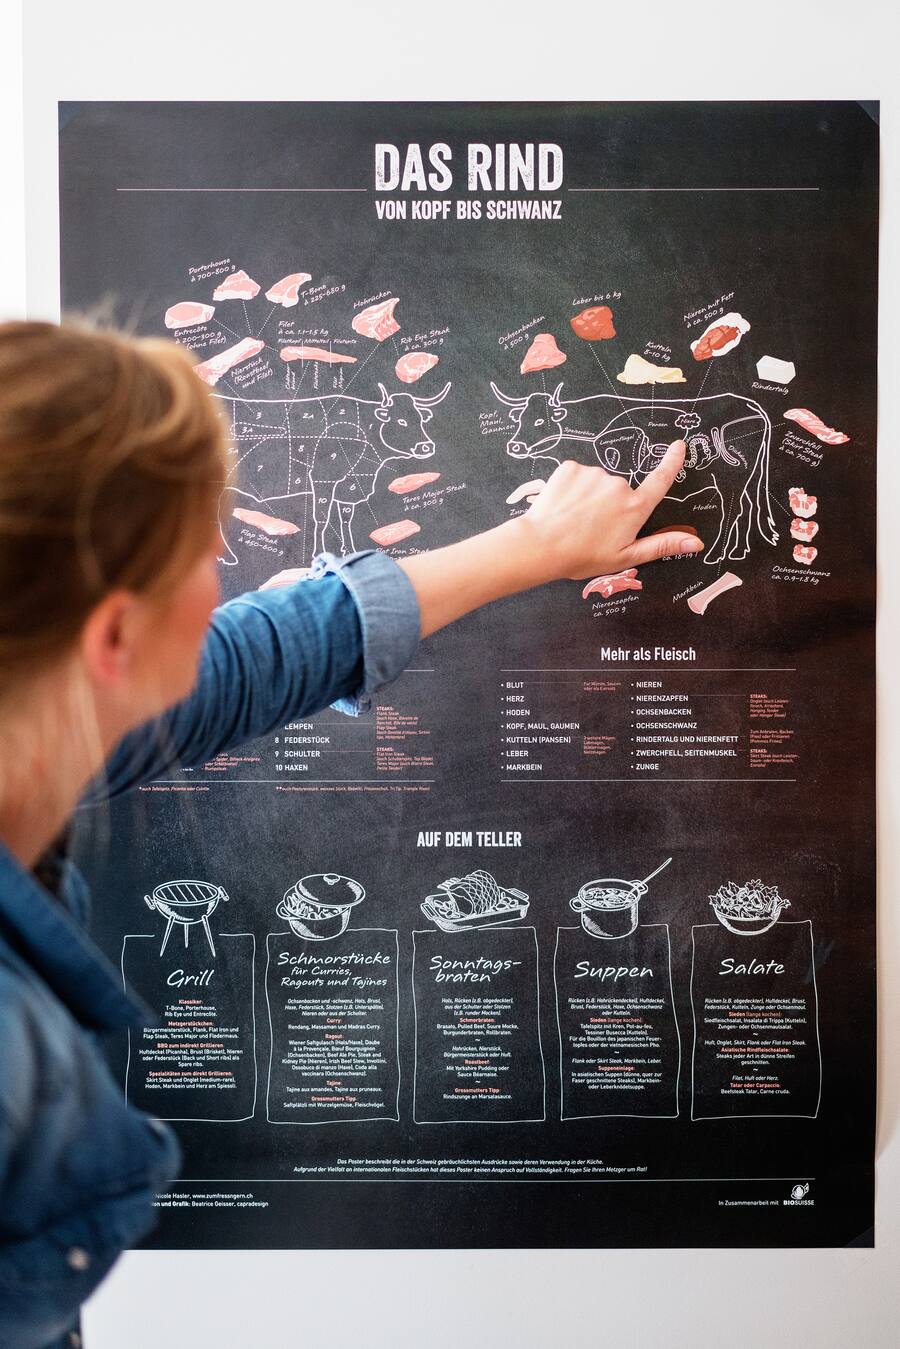 DAS RIND
VON KOPF BIS SCHWANZ
Porterhouse
à 700-800 g
T-Bone
à 225-680 g
Entrecôte
à 200-300 g
(ohne Filet)
Nierstück
(Roastbeef
und Filet)
Filet
à ca. 1.1-1.5 kg
Filetkopf
Mittelteil
Filetspitz
Hohrücken
Rib Eye Steak
à ca. 300 g
3
2A
2
1
3A
8
9
7
6
6
10
10
Teres Major Steak
à ca. 300 g
Flap Steak
à 450-600 g
Flat Iron Steak
Ochsenbacken
à 500 g
Leber bis 6 kg
Kutteln
8-10 kg
Nieren mit Fett
à ca. 500 g
Rindertalg
Kopf,
Maul,
Gaumen
Speiseröhre
Lungenflügel
Pansen
Niere
Dickdarm
Zwerchfell
(Skirt Steak
à ca. 700 g)
Hoden
Ochsenschwanz
à ca. 0.9-1.8 kg
Nierenzapfen
ca. 500 g
Markbein
Mehr als Fleisch
LEMPEN
8 FEDERSTÜCK
9 SCHULTER
10 HAXEN
STEAKS:
Flank Steak
STEAKS:
Flat Iron Steak
• BLUT
• HERZ
• HODEN
• KOPF, MAUL, GAUMEN
• KUTTELN (PANSEN)
• LEBER
• MARKBEIN
• NIEREN
• NIERENZAPFEN
• OCHSENBACKEN
• OCHSENSCHWANZ
• RINDERTALG UND NIERENFETT
• ZWERCHFELL, SEITENMUSKEL
• ZUNGE
STEAKS:
Zum Anbraten, Backen
STEAKS:
AUF DEM TELLER
Grill
Klassiker:
T-Bone, Porterhouse,
Rib Eye und Entrecôte.
Metzgerstückchen:
Bürgermeisterstück, Flank, Flat Iron und
Flap Steak, Teres Major und Fledermaus.
BBQ zum indirekt Grillieren:
Huftdeckel (Picanha), Brust (Brisket), Nieren
oder Federstück (Back und Short ribs)
Spare ribs.
Spezialitäten zum direkt Grillieren:
Skirt Steak und Onglet (medium-rare),
Hoden, Markbein und Herz am Spiessli.
Schmorstücke
für Curries,
Ragouts und Tajines
Ochsenbacken und -schwanz, Hals, Brust,
Haxe, Federstück, Stotzen (z.B. Unterspälte),
Nieren oder aus der Schulter.
Curry:
Rendang, Massaman und Madras Curry.
Ragout:
Wiener Saftgulasch (Hals/Haxe), Daube
à la Provençale, Bœuf Bourguignon
(Ochsenbacken), Beef Ale Pie, Steak and
Kidney Pie (Nieren), Irish Beef Stew, Involtini,
Ossobuco di manzo (Haxe), Coda alla
vaccinara (Ochsenschwanz).
Tajine:
Tajine aux amandes, Tajine aux pruneaux.
Grossmutters Tipp:
Saftplätzli mit Wurzelgemüse, Fleischvögel.
Sonntags-
braten
Hals, Rücken (z.B. abgedeckter),
aus der Schulter oder Stotzen
(z.B. runder Mocken).
Schmorbraten:
Brasato, Pulled Beef, Suure Mocke,
Burgunderbraten, Rollbraten.
~
Hohrücken, Nierstück,
Bürgermeisterstück oder Huft.
Roastbeef:
Mit Yorkshire Pudding oder
Sauce Béarnaise.
~
Grossmutters Tipp:
Rindszunge an Marsalasauce.
Suppen
Rücken (z.B. Hohrückendeckel), Huftdeckel,
Brust, Federstück, Haxe, Ochsenschwanz
oder Kutteln.
Sieden (lange kochen):
Tafelspitz mit Kren, Pot-au-feu,
Tessiner Busecca (Kutteln).
Für die Bouillon des japanischen Feuer-
topfes oder der vietnamesischen Pho.
~
Flank oder Skirt Steak, Markbein, Leber.
Suppeneinlage:
In asiatischen Suppen (dünne, quer zur
Faser geschnittene Steaks), Markbein-
oder Leberknödelsuppe.
Salate
Rücken (z.B. abgedeckter), Huftdeckel, Brust,
Federstück, Kutteln, Zunge oder Ochsenmaul.
Sieden (lange kochen):
Siedfleischsalat, Insalata di Trippa (Kutteln),
Zungen- oder Ochsenmaulsalat.
~
Huft, Onglet, Skirt, Flank oder Flat Iron Steak.
Asiatische Rindfleischsalate:
Steaks jeder Art in dünne Streifen
geschnitten.
~
Filet, Huft oder Herz.
Tatar oder Carpaccio:
Beefsteak Tatar, Carne cruda.
Das Poster beschreibt die in der Schweiz gebräuchlichsten Ausdrücke sowie deren Verwendung in der Küche.
Aufgrund der Vielfalt an internationalen Fleischstücken hat dieses Poster keinen Anspruch auf Vollständigkeit. Fragen Sie Ihren Metzger um Rat!
Nicole Hasler, www.zumfressngern.ch
und Grafik: Beatrice Geisser, capradesign
In Zusammenarbeit mit
BIOSUISSE